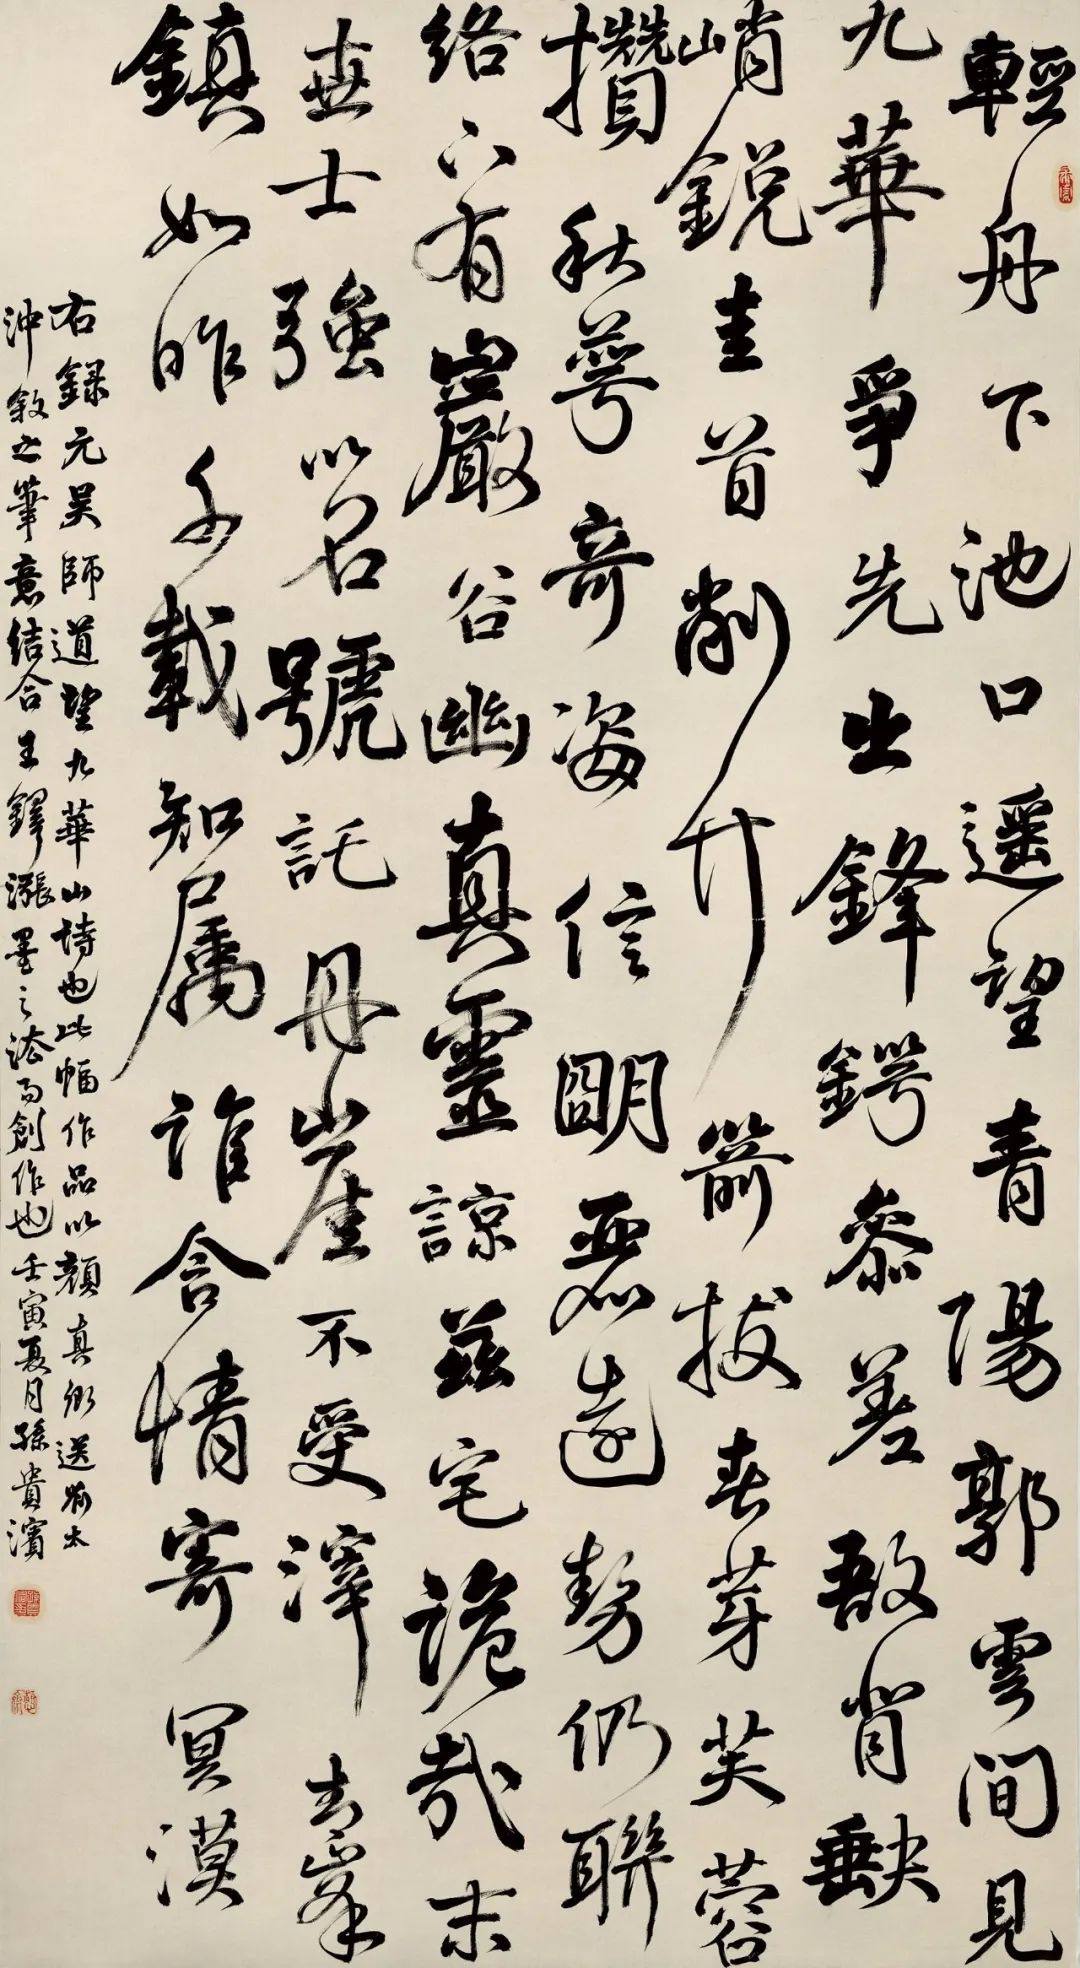 輕舟下池口遥望青陽郭雲間見
九華爭先出鋒鍔参差敢肯缺
峭鋭圭首削竹箭拔春芽芙蓉
攢秋萼奇姿信明惡遠勢仍聯
络下有巖谷幽真靈諒兹宅詭哉末
世士強以名號託丹崖不受滓青峯
鎮如昨千載知属誰含情寄冥漠
右録元吴師道望九華山詩也此幅作品以顔真卿送劉太
沖叙之筆意结合王鐸漲墨之法而創作也壬寅夏月孫貴濱